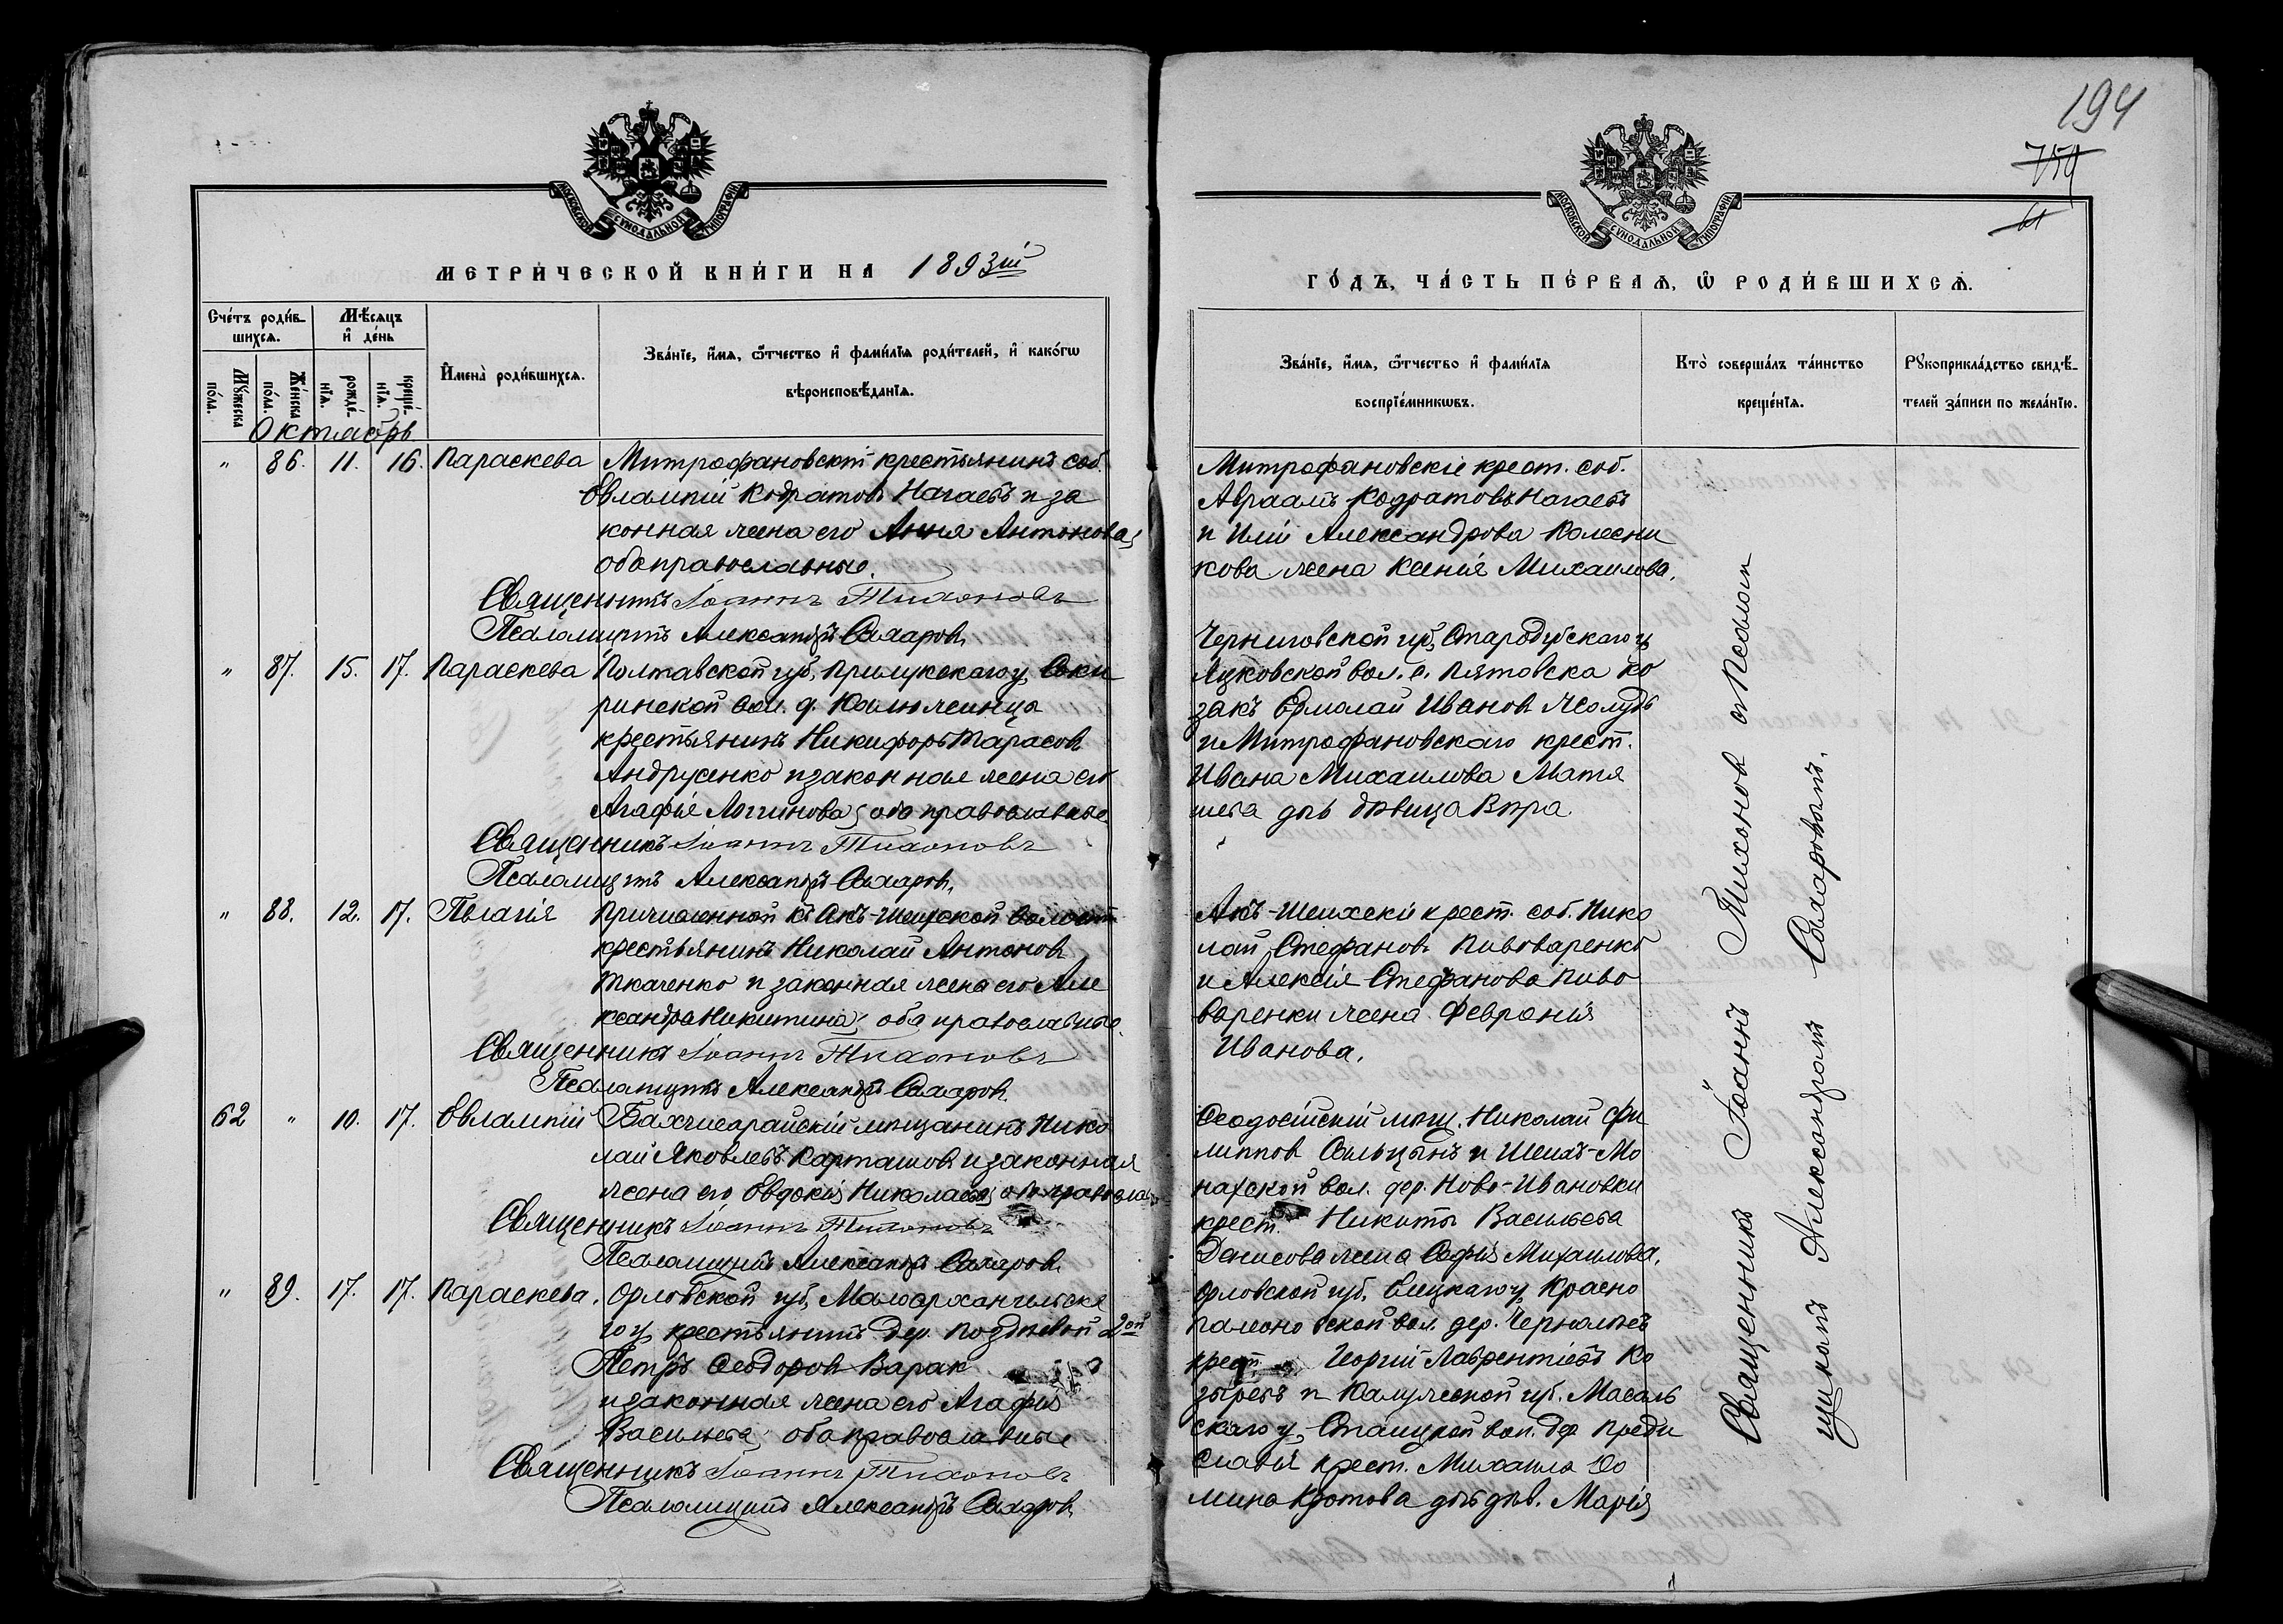 194
759
61
МОСКОВСКОЙ СѴНОДАЛЬНОЙ ТИПОГРАФІИ
МОСКОВСКОЙ СѴНОДАЛЬНОЙ ТИПОГРАФІИ
МЕТРИ́ЧЕСКОЙ КНИ́ГИ НА 1893ій
ГО́ДЪ, ЧА́СТЬ ПЕ́РВАѦ, Ѿ РОДИ́ВШИХСѦ.
Сче́тъ роди́в-
шихсѧ.
Мꙋ́жеска по́ла.
Же́нска по́ла.
Мѣ́сѧцъ
и҆ де́нь
рожде́-
нїѧ.
креще́-
нїѧ.
И҆мена̀ роди́вшихсѧ.
Зва́нїе, и҆́мѧ, ѻ҆́тчество и҆ фами́лїѧ роди́телей, и҆ како́гѡ
вѣроисповѣ́данїѧ.
Зва́нїе, и҆́мѧ, ѻ҆́тчество и҆ фами́лїѧ
воспрїе́мникѡвъ.
Кто̀ соверша́лъ та́инство
креще́нїѧ.
Рꙋкоприкла́дство свидѣ́-
телей за́писи по жела́нїю.
Октябрь
" 86. 11. 16. Параскева Митрофановскій крестьянинъ соб.
Евлампій Кодратовъ Нагаевъ и за
конная жена его Анна Антонова,
оба православные.
Священникъ Іоаннъ Тихоновъ
Псаломщикъ Александръ Сахаровъ.
Митрофановскіе крест. соб.
Авраамъ Кодратовъ Нагаевъ
и Иліи Александрова Колесни
кова жена Ксенія Михаилова.
" 87. 15. 17. Параскева Полтавской губ, Прилукскаго у, Соки
ринской вол. д. Калюженца
крестьянинъ Никифоръ Тарасовъ
Андрусенко и законная жена его
Агафія Логгинова, оба православные
Священникъ Іоаннъ Тихоновъ
Псаломщикъ Александръ Сахаровъ.
Черниговской губ, Стародубскаго у,
Яцковской вол. с. Пятовска ко
закъ Ермолай Ивановъ Жолудь
и Митрофановскаго крест.
Ивана Михаилова Матя
шева дчь дѣвица Вѣра.
" 88. 12. 17. Пелагія Причисленной къ Акъ-Шеихской волости
крестьянинъ Николай Антоновъ
Ткаченко и законная жена его Але
ксандра Никитина, оба православные.
Священникъ Іоаннъ Тихоновъ
Псаломщикъ Александръ Сахаровъ.
Акъ-Шеихскіе крест. соб. Нико
лай Стефановъ Пивоваренко
и Алексія Стефанова Пиво
варенки жена Февронія
Иванова.
62 " 10. 17. Евлампій Бахчисарайскій мѣщанинъ Нико
лай Яковлевъ Карташовъ и законная
жена его Евдокія Николаева, оба правосла
Священникъ Іоаннъ Тихоновъ
Псаломщикъ Александръ Сахаровъ.
Ѳеодосійскій мѣщ. Николай Фи
липпов Сальцынъ и Шеихъ-Мо
нахской вол. дер. Ново-Ивановки
крест. Никиты Васильева
Денисова жена Софія Михаилова.
" 89. 17. 17. Параскева. Орловской губ, Малоархангельска
го у, крестьянинъ дер. Поздѣевой 2ой
Петръ Ѳеодоровъ Варак
и законная жена его Агафія
Васильева, оба православные
Священникъ Іоаннъ Тихоновъ
Псаломщикъ Александръ Сахаровъ.
Орловской губ. Елецкаго у, Красно
вской вол. дер.
крест. Георгій Лаврентіевъ Ко
зыревъ и Калужской губ. Масаль
скаго у, вол. дер.
крест. Михаила Ѳо
мина Кротова дчь дѣв. Марія
Священникъ Іоаннъ Тихонов с Псалом
щикомъ Александромъ Сахаровымъ.